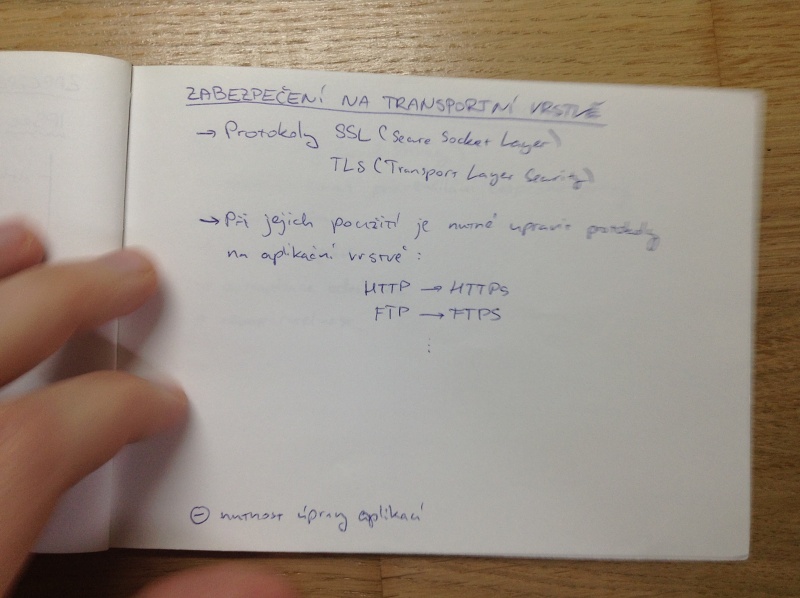 ZABEZPEČENÍ NA TRANSPORTNÍ VRSTVĚ
→ Protokoly SSL (Secure Socket Layer)
TLS (Transport Layer Security)
→ Při jejich použití je nutné upravit protokoly
na aplikační vrstvě:
HTTP → HTTPS
FTP → FTPS
⋮
⊖ nutnost úpravy aplikací